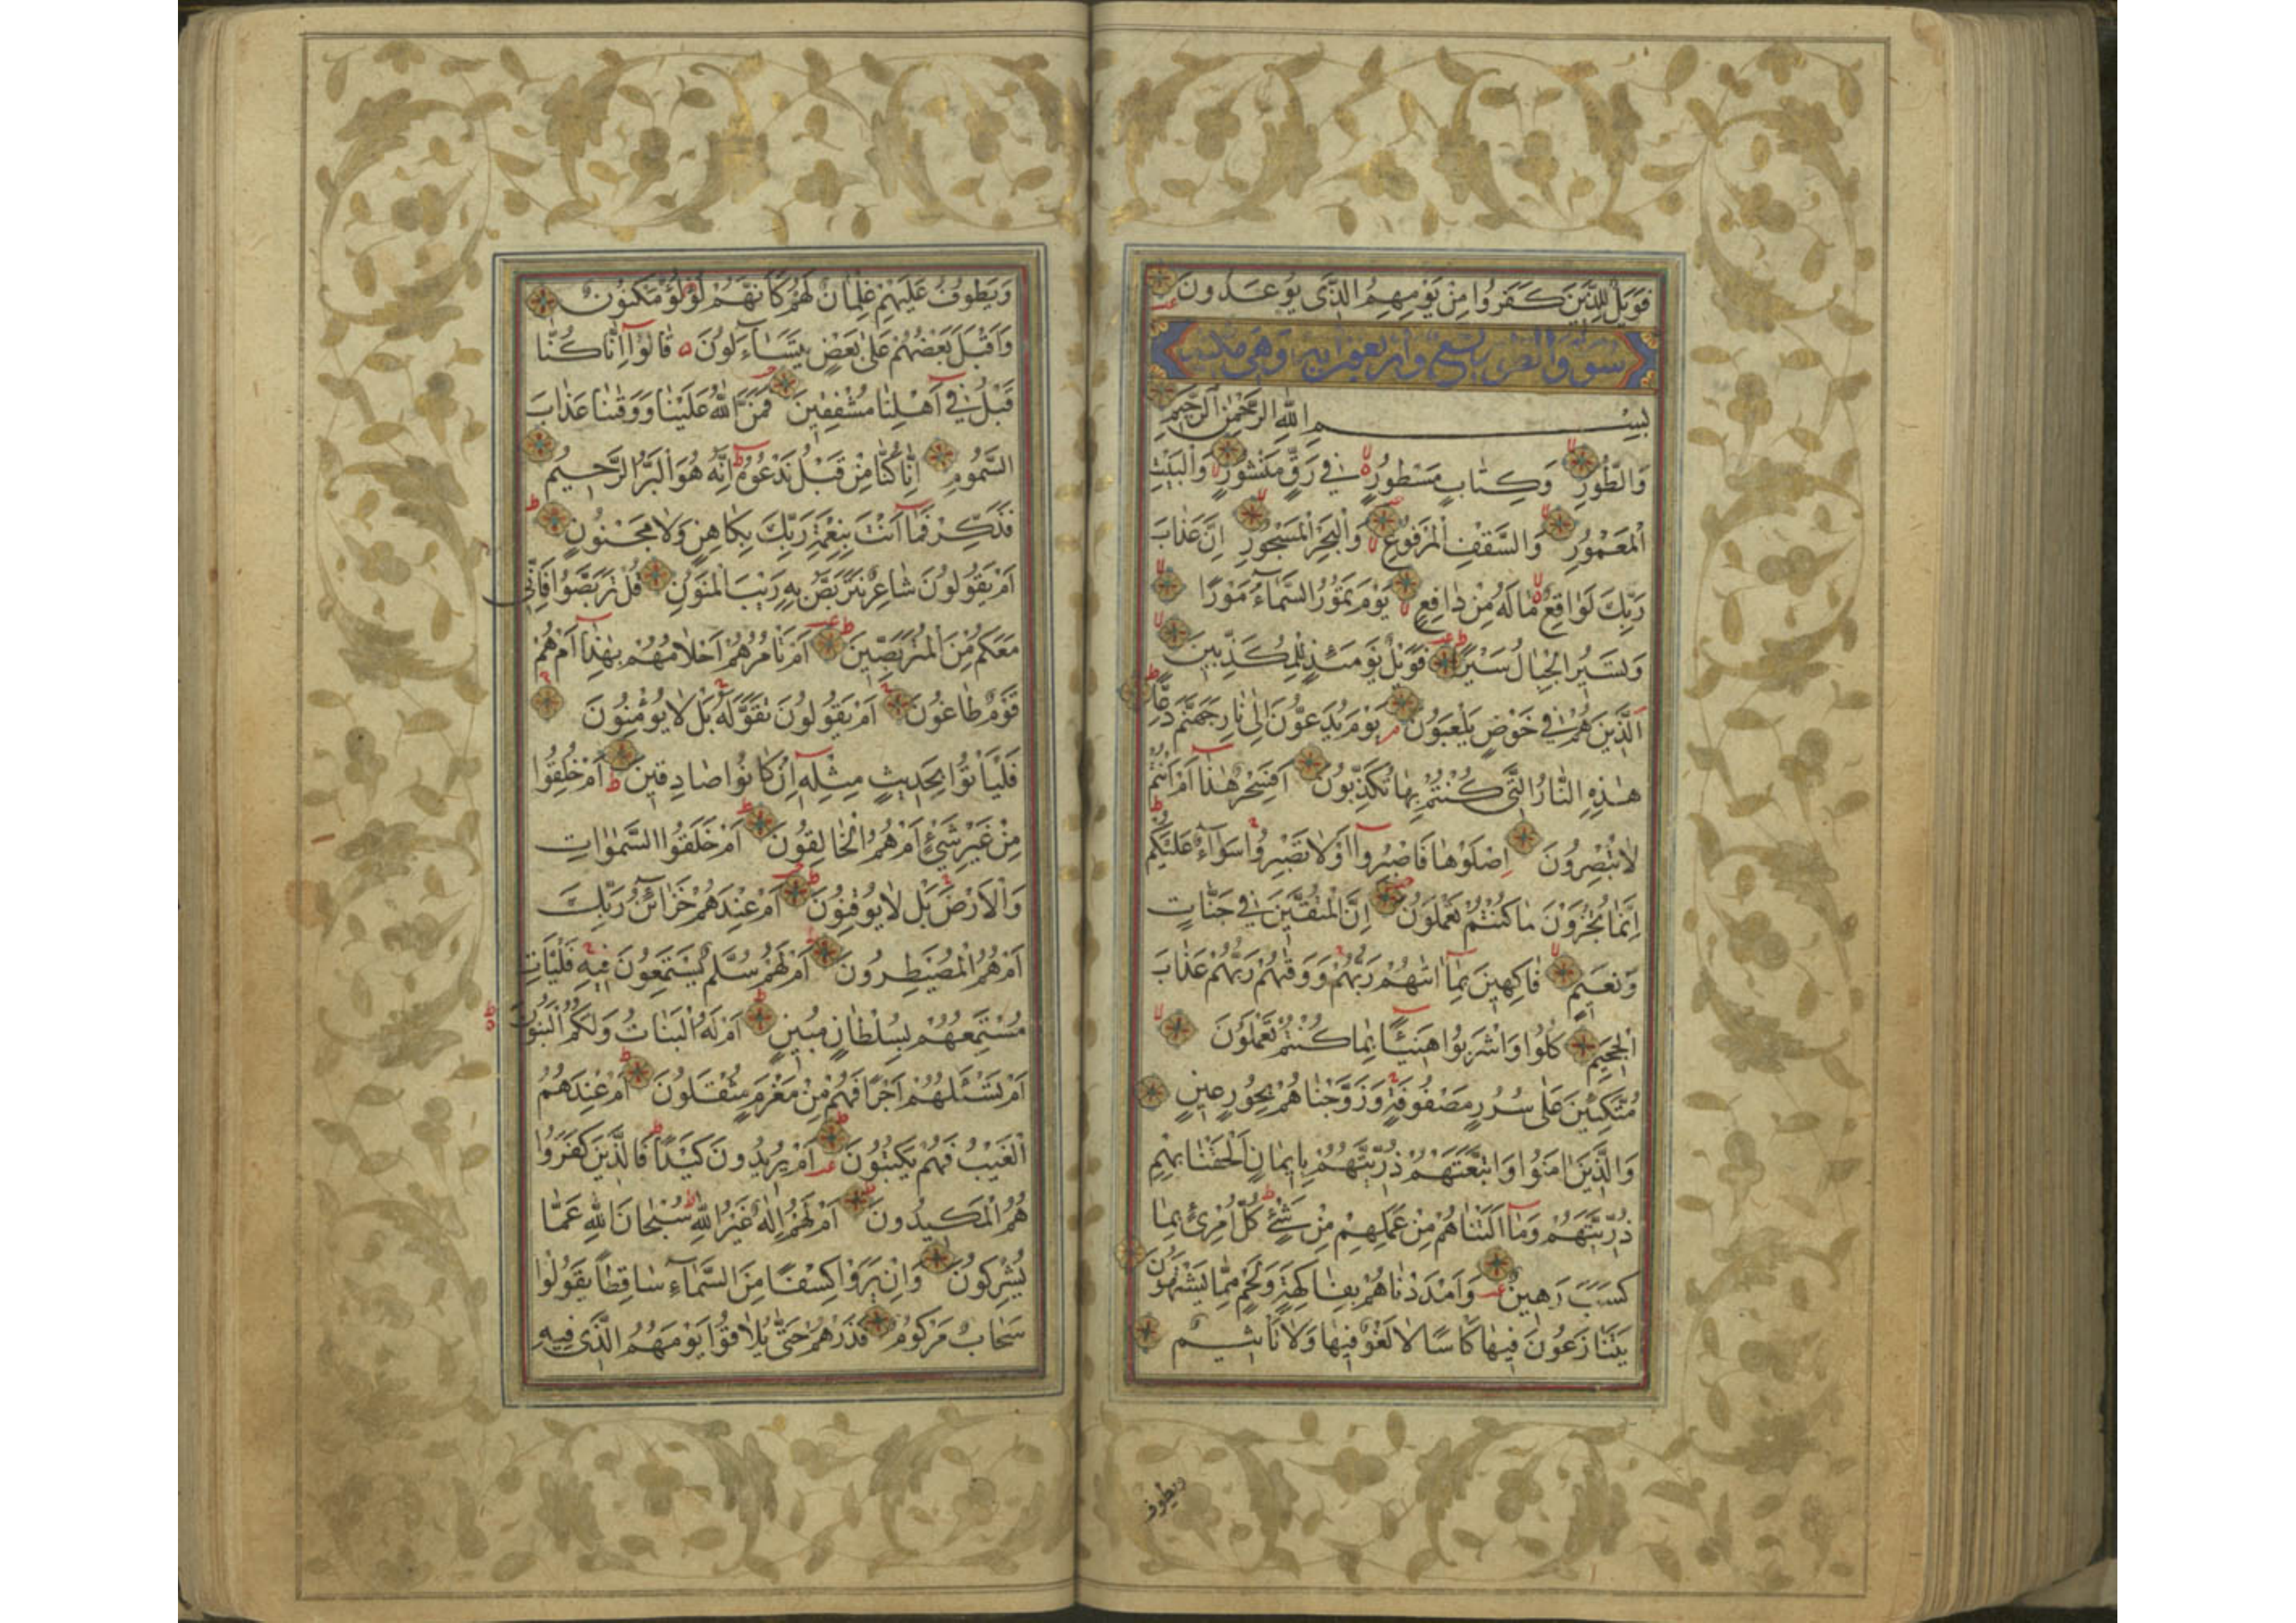 فَوَيْلٌ لِلَّذِينَ كَفَرُوا مِنْ يَوْمِهِمُ الَّذِي يُوعَدُونَ
سورة والطور تسع واربعون اية وهي مكية
بِسْمِ اللَّهِ الرَّحْمٰنِ الرَّحِيمِ
وَالطُّورِ وَكِتَابٍ مَسْطُورٍ فِي رَقٍّ مَنْشُورٍ وَالْبَيْتِ
الْمَعْمُورِ وَالسَّقْفِ الْمَرْفُوعِ وَالْبَحْرِ الْمَسْجُورِ اِنَّ عَذَابَ
رَبِّكَ لَوَاقِعٌ مَا لَهُ مِنْ دَافِعٍ يَوْمَ تَمُورُ السَّمَاءُ مَوْرًا
وَتَسِيرُ الْجِبَالُ سَيْرًا فَوَيْلٌ يَوْمَئِذٍ لِلْمُكَذِّبِينَ
الَّذِينَ هُمْ فِي خَوْضٍ يَلْعَبُونَ يَوْمَ يُدَعُّونَ اِلٰى نَارِ جَهَنَّمَ دَعًّا
هٰذِهِ النَّارُ الَّتِي كُنْتُمْ بِهَا تُكَذِّبُونَ اَفَسِحْرٌ هٰذَا اَمْ اَنْتُمْ
لَا تُبْصِرُونَ اِصْلَوْهَا فَاصْبِرُوا اَوْ لَا تَصْبِرُوا سَوَاءٌ عَلَيْكُمْ
اِنَّمَا تُجْزَوْنَ مَا كُنْتُمْ تَعْمَلُونَ اِنَّ الْمُتَّقِينَ فِي جَنَّاتٍ
وَنَعِيمٍ فَاكِهِينَ بِمَا اٰتٰيهُمْ رَبُّهُمْ وَوَقٰيهُمْ رَبُّهُمْ عَذَابَ
الْجَحِيمِ كُلُوا وَاشْرَبُوا هَنِيئًا بِمَا كُنْتُمْ تَعْمَلُونَ
مُتَّكِئِينَ عَلٰى سُرُرٍ مَصْفُوفَةٍ وَزَوَّجْنَاهُمْ بِحُورٍ عِينٍ
وَالَّذِينَ اٰمَنُوا وَاتَّبَعَتْهُمْ ذُرِّيَّتُهُمْ بِاِيمَانٍ اَلْحَقْنَا بِهِمْ
ذُرِّيَّتَهُمْ وَمَا اَلَتْنَاهُمْ مِنْ عَمَلِهِمْ مِنْ شَيْءٍ كُلُّ امْرِئٍ بِمَا
كَسَبَ رَهِينٌ وَاَمْدَدْنَاهُمْ بِفَاكِهَةٍ وَلَحْمٍ مِمَّا يَشْتَهُونَ
يَتَنَازَعُونَ فِيهَا كَأْسًا لَا لَغْوٌ فِيهَا وَلَا تَأْثِيمٌ
ويطوف
وَيَطُوفُ عَلَيْهِمْ غِلْمَانٌ لَهُمْ كَاَنَّهُمْ لُؤْلُؤٌ مَكْنُونٌ
وَاَقْبَلَ بَعْضُهُمْ عَلٰى بَعْضٍ يَتَسَاءَلُونَ قَالُوا اِنَّا كُنَّا
قَبْلُ فِي اَهْلِنَا مُشْفِقِينَ فَمَنَّ اللَّهُ عَلَيْنَا وَوَقٰينَا عَذَابَ
السَّمُومِ اِنَّا كُنَّا مِنْ قَبْلُ نَدْعُوهُ اِنَّهُ هُوَ الْبَرُّ الرَّحِيمُ
فَذَكِّرْ فَمَا اَنْتَ بِنِعْمَةِ رَبِّكَ بِكَاهِنٍ وَلَا مَجْنُونٍ
اَمْ يَقُولُونَ شَاعِرٌ نَتَرَبَّصُ بِهِ رَيْبَ الْمَنُونِ قُلْ تَرَبَّصُوا فَاِنِّي
مَعَكُمْ مِنَ الْمُتَرَبِّصِينَ اَمْ تَأْمُرُهُمْ اَحْلَامُهُمْ بِهٰذَا اَمْ هُمْ
قَوْمٌ طَاغُونَ اَمْ يَقُولُونَ تَقَوَّلَهُ بَلْ لَا يُؤْمِنُونَ
فَلْيَأْتُوا بِحَدِيثٍ مِثْلِهِ اِنْ كَانُوا صَادِقِينَ اَمْ خُلِقُوا
مِنْ غَيْرِ شَيْءٍ اَمْ هُمُ الْخَالِقُونَ اَمْ خَلَقُوا السَّمٰوَاتِ
وَالْاَرْضَ بَلْ لَا يُوقِنُونَ اَمْ عِنْدَهُمْ خَزَائِنُ رَبِّكَ
اَمْ هُمُ الْمُصَيْطِرُونَ اَمْ لَهُمْ سُلَّمٌ يَسْتَمِعُونَ فِيهِ فَلْيَأْتِ
مُسْتَمِعُهُمْ بِسُلْطَانٍ مُبِينٍ اَمْ لَهُ الْبَنَاتُ وَلَكُمُ الْبَنُونَ
اَمْ تَسْـَٔلُهُمْ اَجْرًا فَهُمْ مِنْ مَغْرَمٍ مُثْقَلُونَ اَمْ عِنْدَهُمُ
الْغَيْبُ فَهُمْ يَكْتُبُونَ اَمْ يُرِيدُونَ كَيْدًا فَالَّذِينَ كَفَرُوا
هُمُ الْمَكِيدُونَ اَمْ لَهُمْ اِلٰهٌ غَيْرُ اللَّهِ سُبْحَانَ اللَّهِ عَمَّا
يُشْرِكُونَ وَاِنْ يَرَوْا كِسْفًا مِنَ السَّمَاءِ سَاقِطًا يَقُولُوا
سَحَابٌ مَرْكُومٌ فَذَرْهُمْ حَتّٰى يُلَاقُوا يَوْمَهُمُ الَّذِي فِيهِ